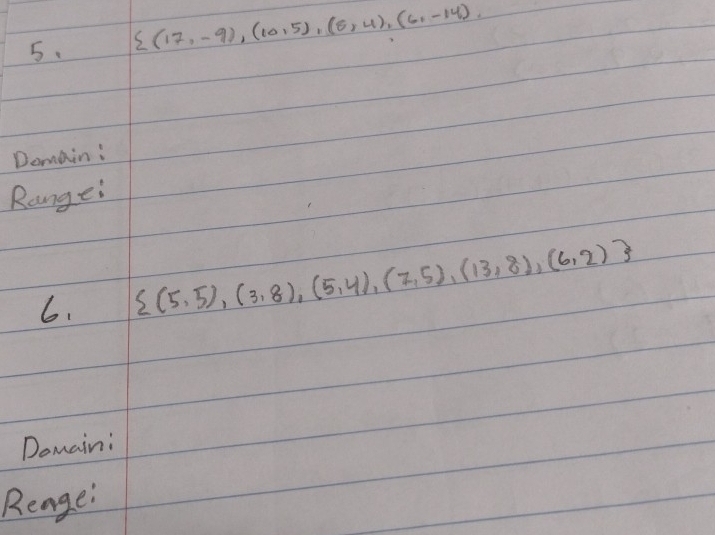 5. {(17, -9), (10,5), (8,4), (6,-14).
Domain:
Range:
6. {(5,5), (3,8), (5,4), (7,5), (13,8), (6,2)}
Domain:
Renge: